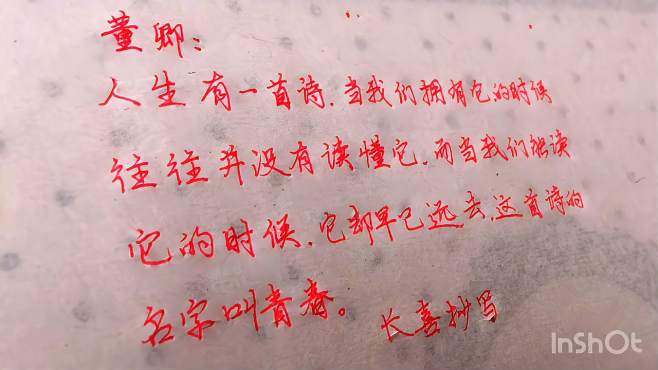 董卿：
人生有一首诗，当我们拥有它的时候
往往并没有读懂它，而当我们能读
它的时候，它却早已远去，这首诗的
名字叫青春。
长喜抄写
InShOt